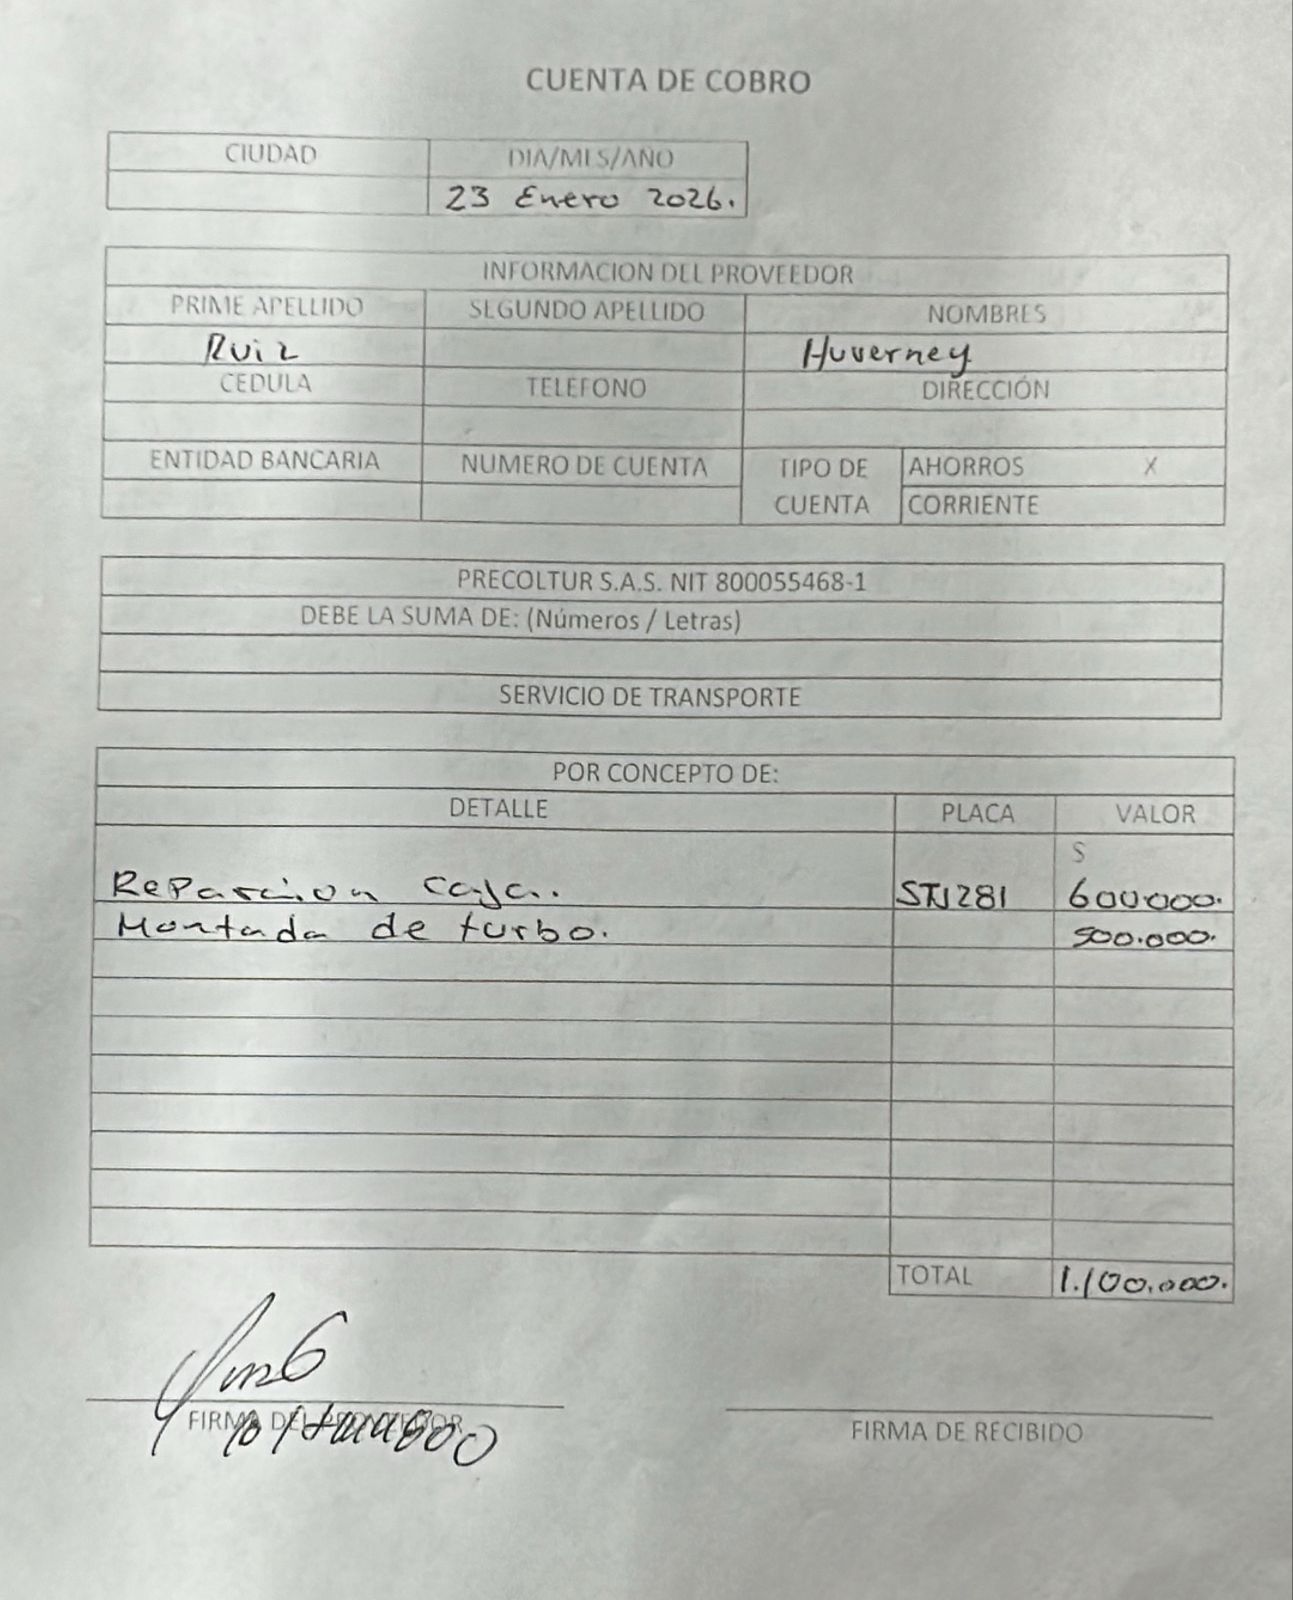 CUENTA DE COBRO
CIUDAD DIA/MES/AÑO
23 Enero 2026.
INFORMACION DEL PROVEEDOR
PRIME APELLIDO SEGUNDO APELLIDO NOMBRES
Ruiz Huverney
CEDULA TELEFONO DIRECCIÓN
ENTIDAD BANCARIA NUMERO DE CUENTA TIPO DE CUENTA AHORROS X
CORRIENTE
PRECOLTUR S.A.S. NIT 800055468-1
DEBE LA SUMA DE: (Números / Letras)
SERVICIO DE TRANSPORTE
POR CONCEPTO DE:
DETALLE PLACA VALOR
$
Reparacion caja. 600.000.
Montada de turbo. 500.000.
TOTAL 1.100.000.
FIRMA DEL PROVEEDOR FIRMA DE RECIBIDO